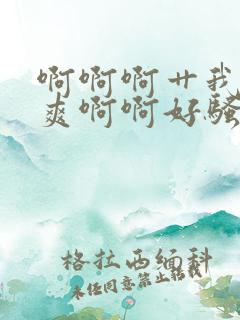 啊啊啊艹我
爽啊啊好骚
格拉西缅科
未经同意禁止转载